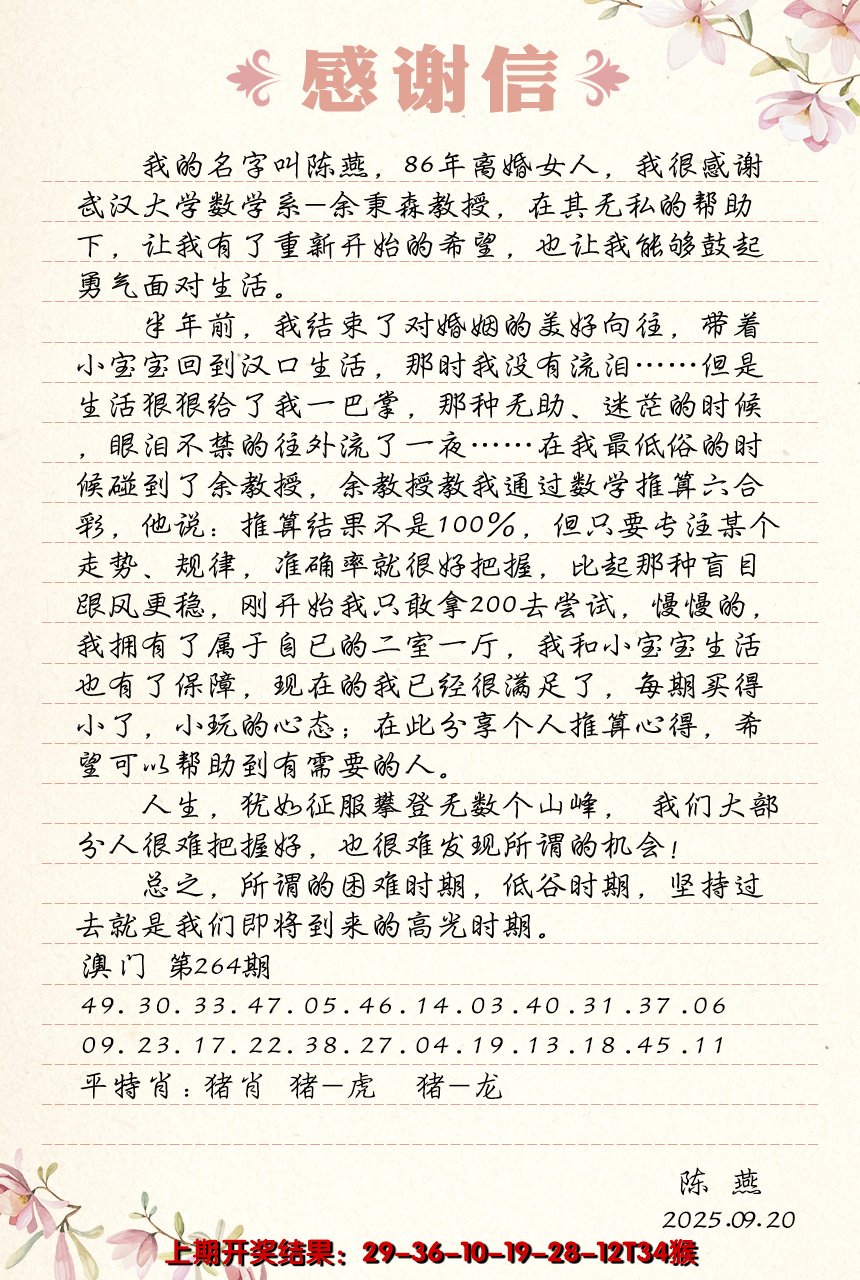 感谢信
我的名字叫陈燕，86年离婚女人，我很感谢
武汉大学数学系—余秉森教授，在其无私的帮助
下，让我有了重新开始的希望，也让我能够鼓起
勇气面对生活。
半年前，我结束了对婚姻的美好向往，带着
小宝宝回到汉口生活，那时我没有流泪……但是
生活狠狠给了我一巴掌，那种无助、迷茫的时候
，眼泪不禁的往外流了一夜……在我最低俗的时
候碰到了余教授，余教授教我通过数学推算六合
彩，他说：推算结果不是100%，但只要专注某个
走势、规律，准确率就很好把握，比起那种盲目
跟风更稳，刚开始我只敢拿200去尝试，慢慢的，
我拥有了属于自己的二室一厅，我和小宝宝生活
也有了保障，现在的我已经很满足了，每期买得
小了，小玩的心态；在此分享个人推算心得，希
望可以帮助到有需要的人。
人生，犹如征服攀登无数个山峰， 我们大部
分人很难把握好，也很难发现所谓的机会！
总之，所谓的困难时期，低谷时期，坚持过
去就是我们即将到来的高光时期。
澳门 第264期
49.30.33.47.05.46.14.03.40.31.37.06
09.23.17.22.38.27.04.19.13.18.45.11
平特肖：猪肖 猪—虎 猪—龙
陈 燕
2025.09.20
上期开奖结果：29-36-10-19-28-12T34猴